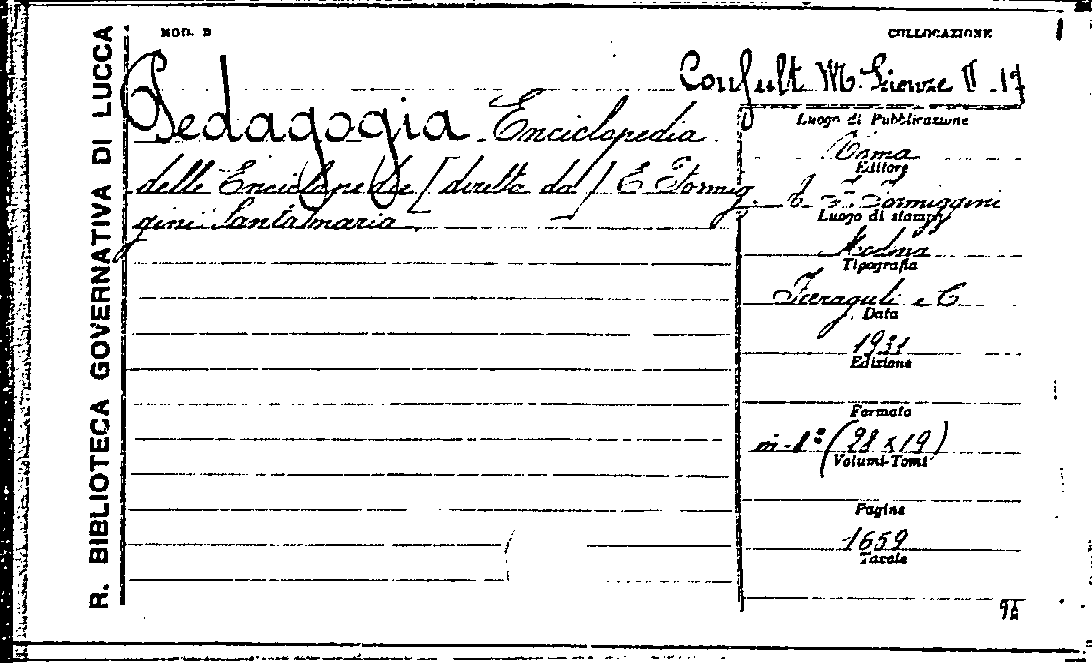 R. BIBLIOTECA GOVERNATIVA DI LUCCA
MOD. B
COLLOCAZIONE
Consult M. Scienze II. 17
Pedagogia Enciclopedia
delle Enciclopedie [diretta da] E. Formig
gini Santamaria
Luogo di Pubblicazione
Roma
Editore
A. F. Formiggini
Luogo di stampa
Modena
Tipografia
Ferraguti e C
Data
1931
Edizione
Formato
in-8° (28 x 19)
Volumi-Tomi
Pagine
1659
Tavole